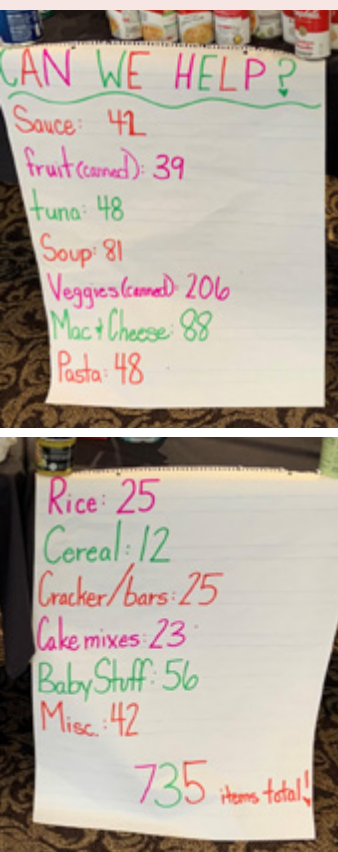 CAN WE HELP?
Sauce: 42
fruit (canned): 39
tuna: 48
Soup: 81
Veggies (canned): 206
Mac + Cheese: 88
Pasta: 48
Rice: 25
Cereal: 12
Cracker/bars: 25
Cake mixes: 23
Baby Stuff: 56
Misc.: 42
735 items total!